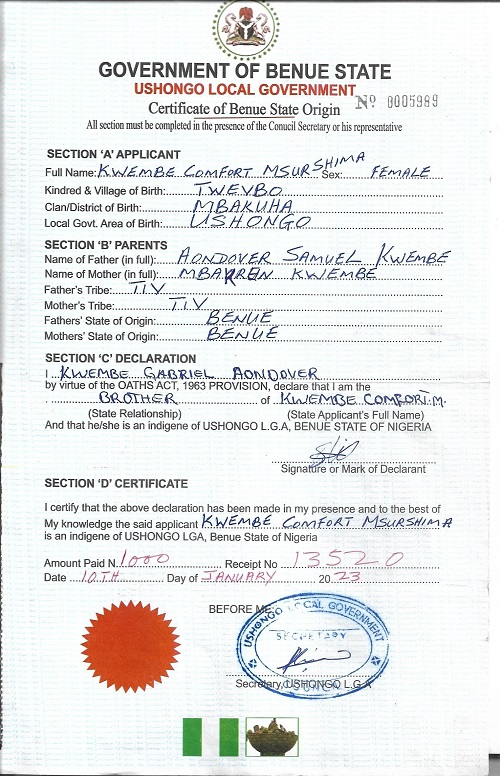 GOVERNMENT OF BENUE STATE
USHONGO LOCAL GOVERNMENT
Certificate of Benue State Origin
Nº 0005989
All section must be completed in the presence of the Conucil Secretary or his representative
SECTION 'A' APPLICANT
Full Name: KWEMBE COMFORT MSURSHIMA Sex: FEMALE
Kindred & Village of Birth: TWEVBO
Clan/District of Birth: MBAKUHA
Local Govt. Area of Birth: USHONGO
SECTION 'B' PARENTS
Name of Father (in full): AONDOVER SAMUEL KWEMBE
Name of Mother (in full): KWEMBE
Father's Tribe: TIV
Mother's Tribe: TIV
Fathers' State of Origin: BENUE
Mothers' State of Origin: BENUE
SECTION 'C' DECLARATION
I KWEMBE GABRIEL AONDOVER
by virtue of the OATHS ACT, 1963 PROVISION, declare that I am the
BROTHER of KWEMBE COMFORT.M.
(State Relationship) (State Applicant's Full Name)
And that he/she is an indigene of USHONGO L.G.A, BENUE STATE OF NIGERIA
Signature or Mark of Declarant
SECTION 'D' CERTIFICATE
I certify that the above declaration has been made in my presence and to the best of
My knowledge the said applicant KWEMBE COMFORT MSURSHIMA
is an indigene of USHONGO LGA, Benue State of Nigeria
Amount Paid N. 1000 Receipt No 13520
Date 10TH Day of JANUARY 20 23
BEFORE ME:
USHONGO LOCAL GOVERNMENT
SECRETARY
Secretary, USHONGO L.G.A